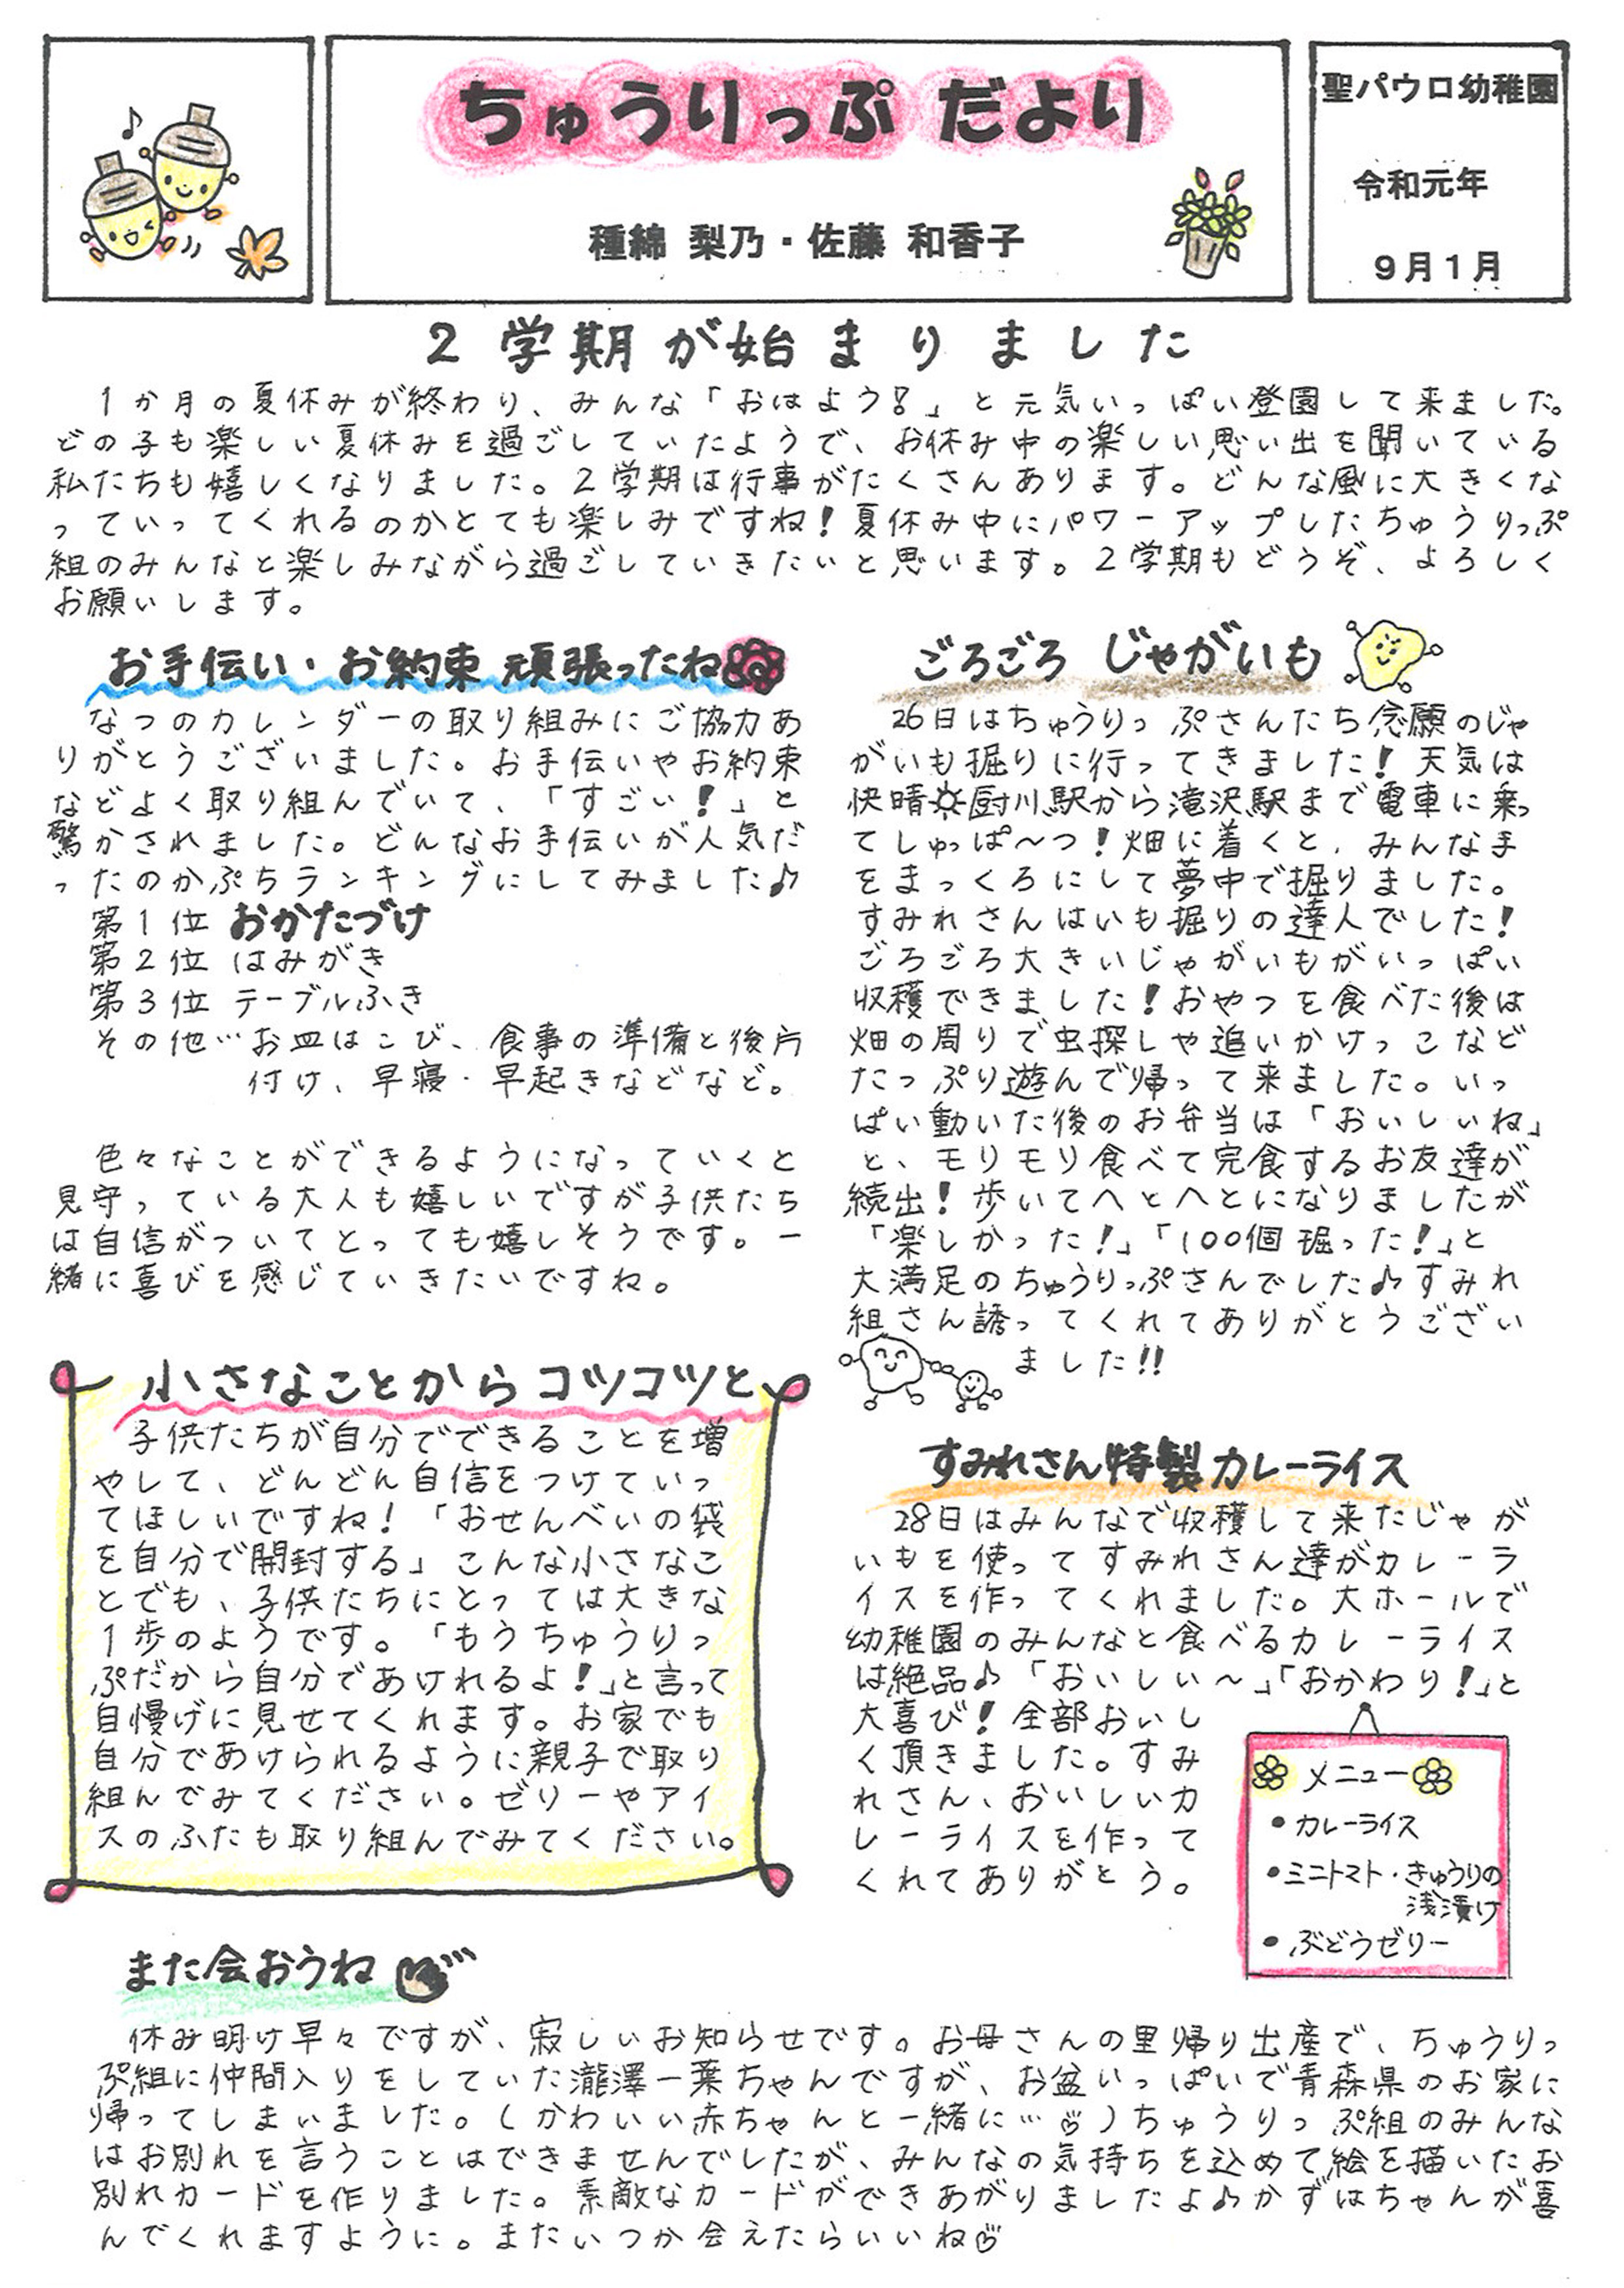 ちゅうりっぷ だより
種綿 梨乃・佐藤 和香子
聖パウロ幼稚園
令和元年
9月1月
2学期が始まりました
1か月の夏休みが終わり、みんな「おはよう!」と元気いっぱい登園して来ました。
どの子も楽しい夏休みを過ごしていたようで、お休み中の楽しい思い出を聞いている
私たちも嬉しくなりました。2学期は行事がたくさんあります。どんな風に大きくな
っていってくれるのかとても楽しみですね!夏休み中にパワーアップしたちゅうりっぷ
組のみんなと楽しみながら過ごしていきたいと思います。2学期もどうぞ、よろしく
お願いします。
お手伝い・お約束 頑張ったね
なつのカレンダーの取り組みにご協力あ
りがとうございました。お手伝いやお約束
などよく取り組んでいて、「すごい!」と
驚かされました。どんなお手伝いが人気だ
ったのかぷちランキングにしてみました♪
第1位 おかたづけ
第2位 はみがき
第3位 テーブルふき
その他…お皿はこび、食事の準備と後片
付け、早寝・早起きなどなど。
色々なことができるようになっていくと
見守っている大人も嬉しいですが子供たち
は自信がついてとっても嬉しそうです。一
緒に喜びを感じていきたいですね。
小さなことからコツコツと
子供たちが自分でできることを増
やして、どんどん自信をつけていっ
てほしいですね!「おせんべいの袋
を自分で開封する」こんな小さなこ
とでも、子供たちにとっては大きな
1歩のようです。「もうちゅうりっ
ぷだから自分であけれるよ!」と言って
自慢げに見せてくれます。お家でも
自分であけられるように親子で取り
組んでみてください。ゼリーやアイ
スのふたも取り組んでみてください。
ごろごろ じゃがいも
26日はちゅうりっぷさんたち念願のじゃ
がいも掘りに行ってきました!天気は
快晴☀厨川駅から滝沢駅まで電車に乗っ
てしゅっぱ～つ!畑に着くと、みんな手
をまっくろにして夢中で掘りました。
すみれさんはいも掘りの達人でした!
ごろごろ大きいじゃがいもがいっぱい
収穫できました!おやつを食べた後は
畑の周りで虫探しや追いかけっこなど
たっぷり遊んで帰って来ました。いっ
ぱい動いた後のお弁当は「おいしいね」
と、モリモリ食べて完食するお友達が
続出!歩いてへとへとになりましたが
「楽しかった!」「100個掘った!」と
大満足のちゅうりっぷさんでした♪すみれ
組さん誘ってくれてありがとうござい
ました!!
すみれさん特製カレーライス
28日はみんなで収穫して来たじゃが
いもを使ってすみれさん達がカレーラ
イスを作ってくれました。大ホールで
幼稚園のみんなと食べるカレーライス
は絶品♪「おいしい～」「おかわり!」と
大喜び!全部おいし
く頂きました。すみ
れさん、おいしいカ
レーライスを作って
くれてありがとう。
メニュー
•カレーライス
•ミニトマト・きゅうりの
浅漬け
•ぶどうゼリー
また会おうね
休み明け早々ですが、寂しいお知らせです。お母さんの里帰り出産で、ちゅうりっ
ぷ組に仲間入りをしていた瀧澤一葉ちゃんですが、お盆いっぱいで青森県のお家に
帰ってしまいました。(かわいい赤ちゃんと一緒に…♡)ちゅうりっぷ組のみんな
はお別れを言うことはできませんでしたが、みんなの気持ちを込めて絵を描いたお
別れカードを作りました。素敵なカードができあがりましたよ♪かずはちゃんが喜
んでくれますように。またいつか会えたらいいね♡